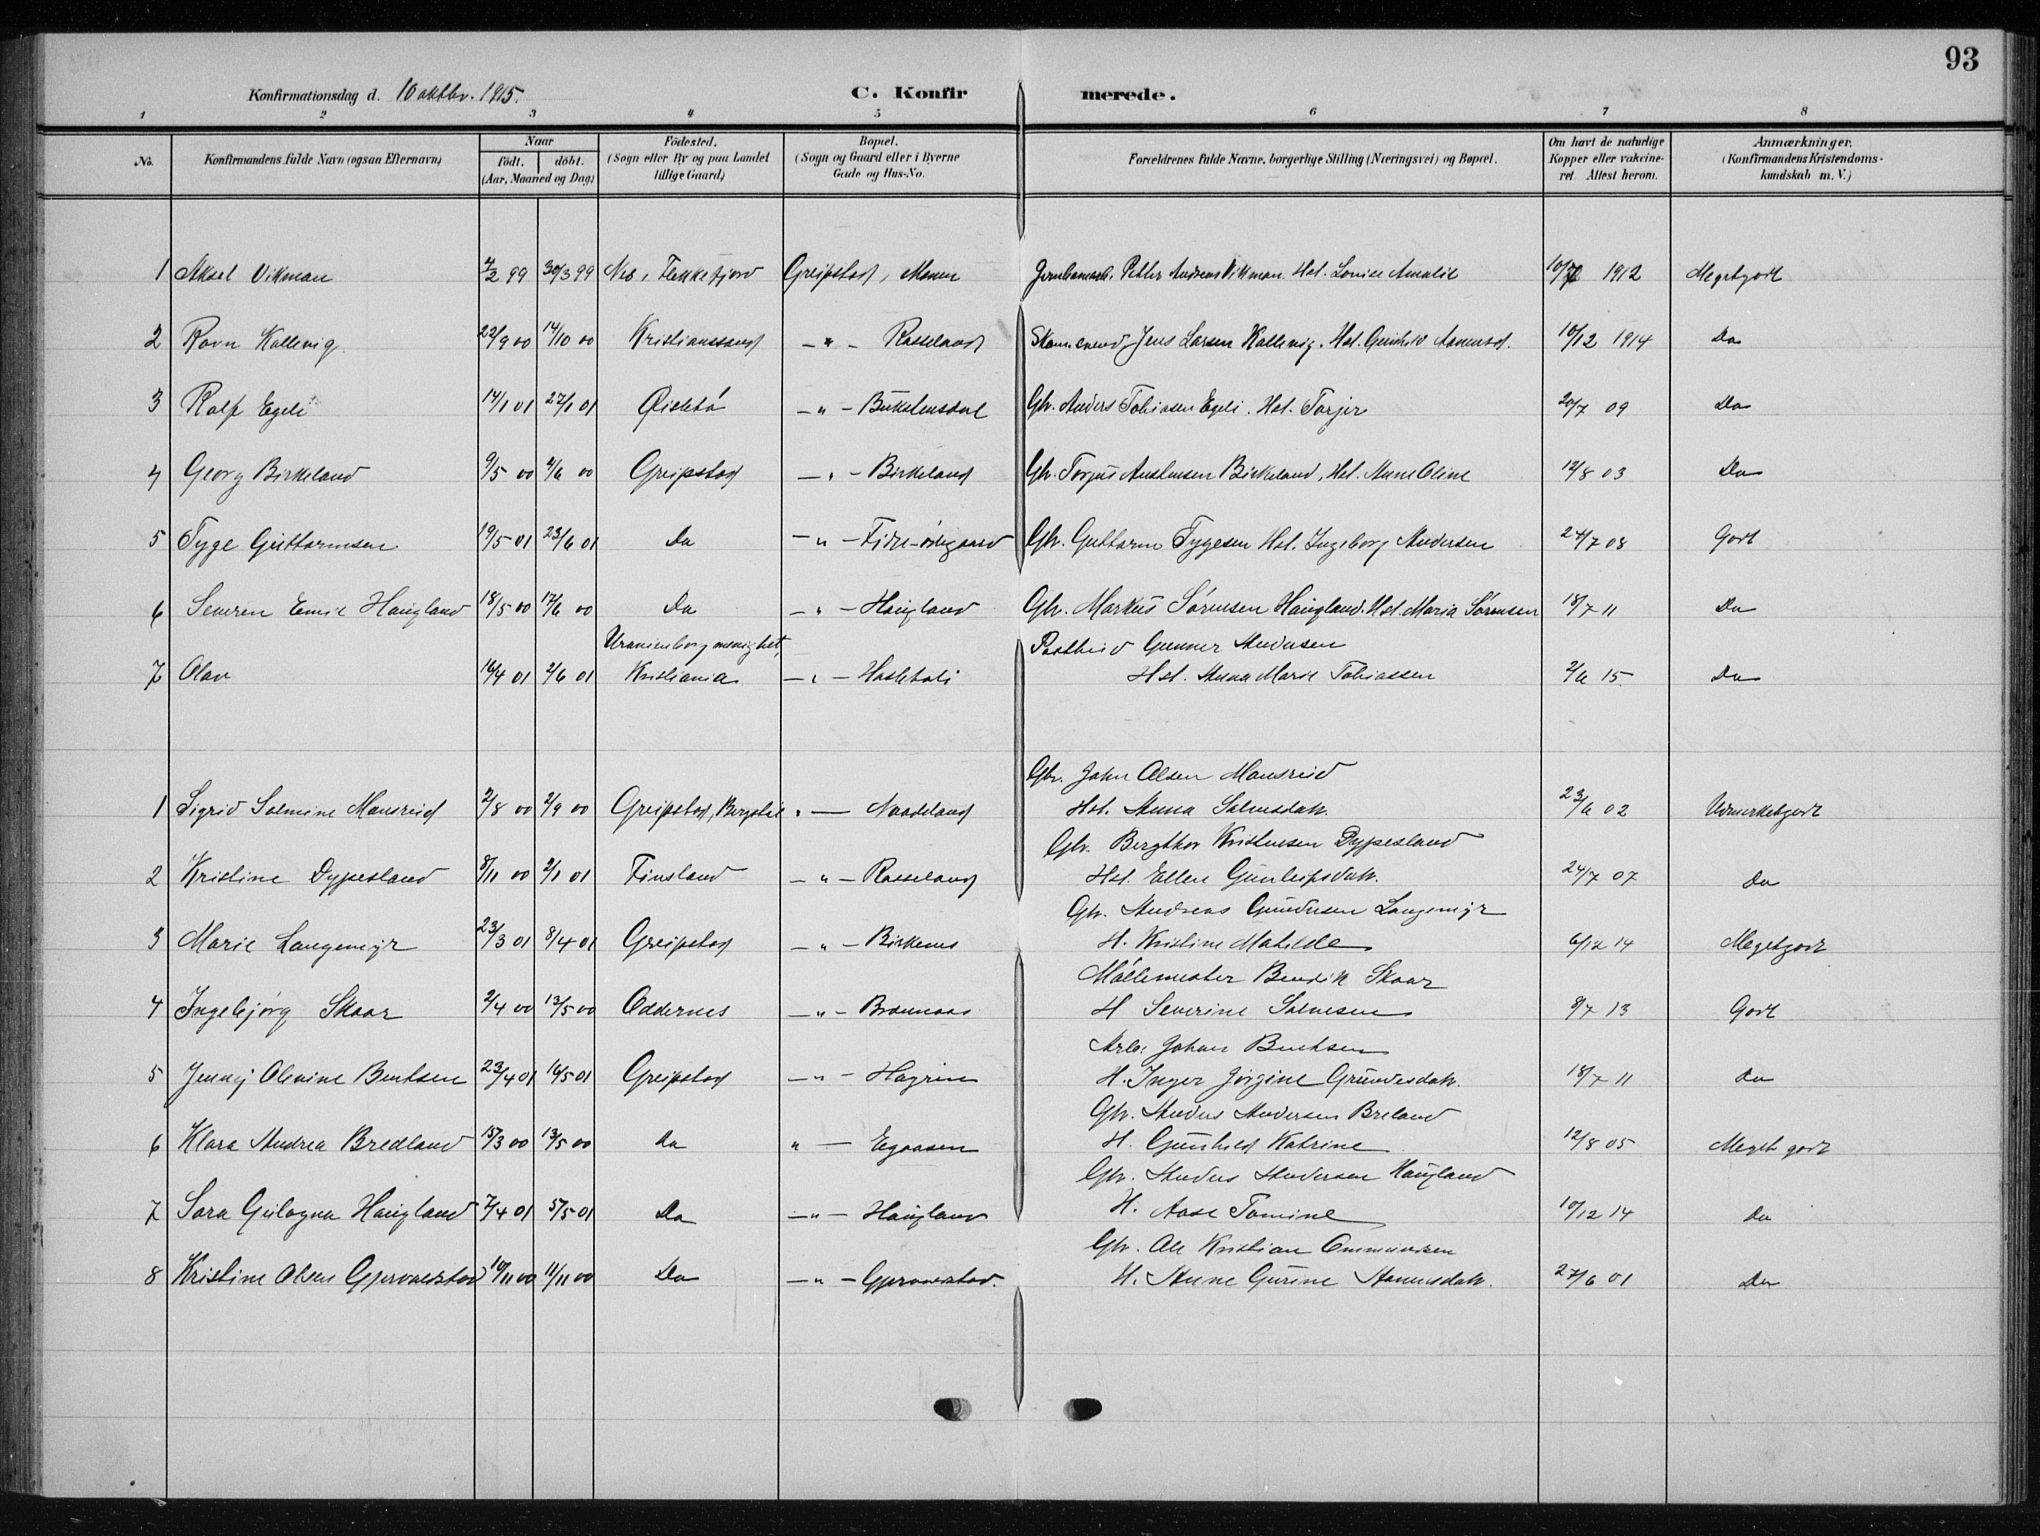 93
Konfirmationsdag d. 10 oktbr. 1915.
C. Konfirmerede.
1 2 3 4 5 6 7 8
No. | Konfirmandens fulde Navn (ogsaa Efternavn) | Naar födt. döbt. (Aar, Maaned og Dag) | Födested. (Sogn eller By og paa Landet tillige Gaard) | Bopæl. (Sogn og Gaard eller i Byerne Gade og Hus-No. | Forældrenes fulde Navne, borgerlige Stilling (Næringsvei) og Bopæl. | Om havt de naturlige Kopper eller vakcineret. Attest herom. | Anmærkninger. (Konfirmandens Kristendomskundskab m. V.)
1 Aksel Vikman 4/2 99 30/3 99 Nes, Flekkefjord Greipstad, Moen Petter Andreas Vikman Hst. Lovise Amalie 1912 Megetgodt
2 Ravn Kallevig 22/9 00 14/10 00 Kristianssand - " - Rosseland Jens Larsen Kallevig. Hst. Gunhild 10/12 1914 Do
3 Rolf Egeli 14/1 01 27/1 01 Øiestø - " - Gbr. Anders Tobiasen Egeli. Hst. Torjer 20/7 09 Do
4 Georg Birkeland 9/5 00 4/6 00 Greipstad - " - Birkeland Gbr. Torjus Austensen Birkeland, Hst. Anne Oline 12/8 03 Do
5 Tyge Guttormsen 19/5 01 23/6 01 Do - " - Fidje-ødegaard Gbr. Guttorm Tygesen Hst. Ingeborg Andersen 24/7 08 Godt
6 Severen Emil Haugland 18/5 00 17/6 00 Do - " - Haugland Gbr. Markus Sørensen Haugland. Hst. Maria Sørensen 18/7 11 Do
Uranienborg menighet, Gunner Andersen
7 Olav 16/4 01 2/6 01 Kristiania - " - Hst. Anna Marie Tobiassen 2/6 15. Do
Gbr. John Olsen Monsreid
1 Sigrid Salmine Monsreid 2/8 00 2/9 00 Greipstad, " - Nodeland Hst. Anna Salvesdatr. 23/6 02 Udmerketgodt
Gbr. Bergthor Kristensen Dypesland
2 Kristine Dypesland 8/11 00 2/1 01 Finsland - " - Rosseland Hst. Ellen Gunleifsdatr. 24/7 07 Do
Gbr. Andreas Gundersen Langemyr
3 Marie Langemyr 23/3 01 8/4 01 Greipstad - " - Birkenes H. Kristine Mathilde 6/12 14 Megetgodt
Møllemester Bendik Skaar
4 Ingebjørg Skaar 2/4 00 13/5 00 Oddernes - " - H Severine Salvesen 8/7 13 Godt
Arb. Johan Bentsen
5 Jenny Olevine Bentsen 23/4 01 16/5 01 Greipstad - " - H. Inger Jørgine Grundesdatr. 18/7 11 Do
Gbr. Anders Andersen Breland
6 Klara Andrea Bredland 15/3 00 13/5 00 Do " - Egaasen H. Gunhild Katrine 12/8 05 Meget godt
Gbr. Anders Andersen Haugland
7 Sara Gulogna Haugland 7/4 01 5/5 01 Do - " - Haugland H. Aase Tomine 10/12 14 Do
Gbr. Ole Kristian Ommundsen
8 Kristine Olsen Gjervoldstad 10/11 00 11/11 00 Do - " - Gjervoldstad. H. Anne Gurine 27/6 01 Do